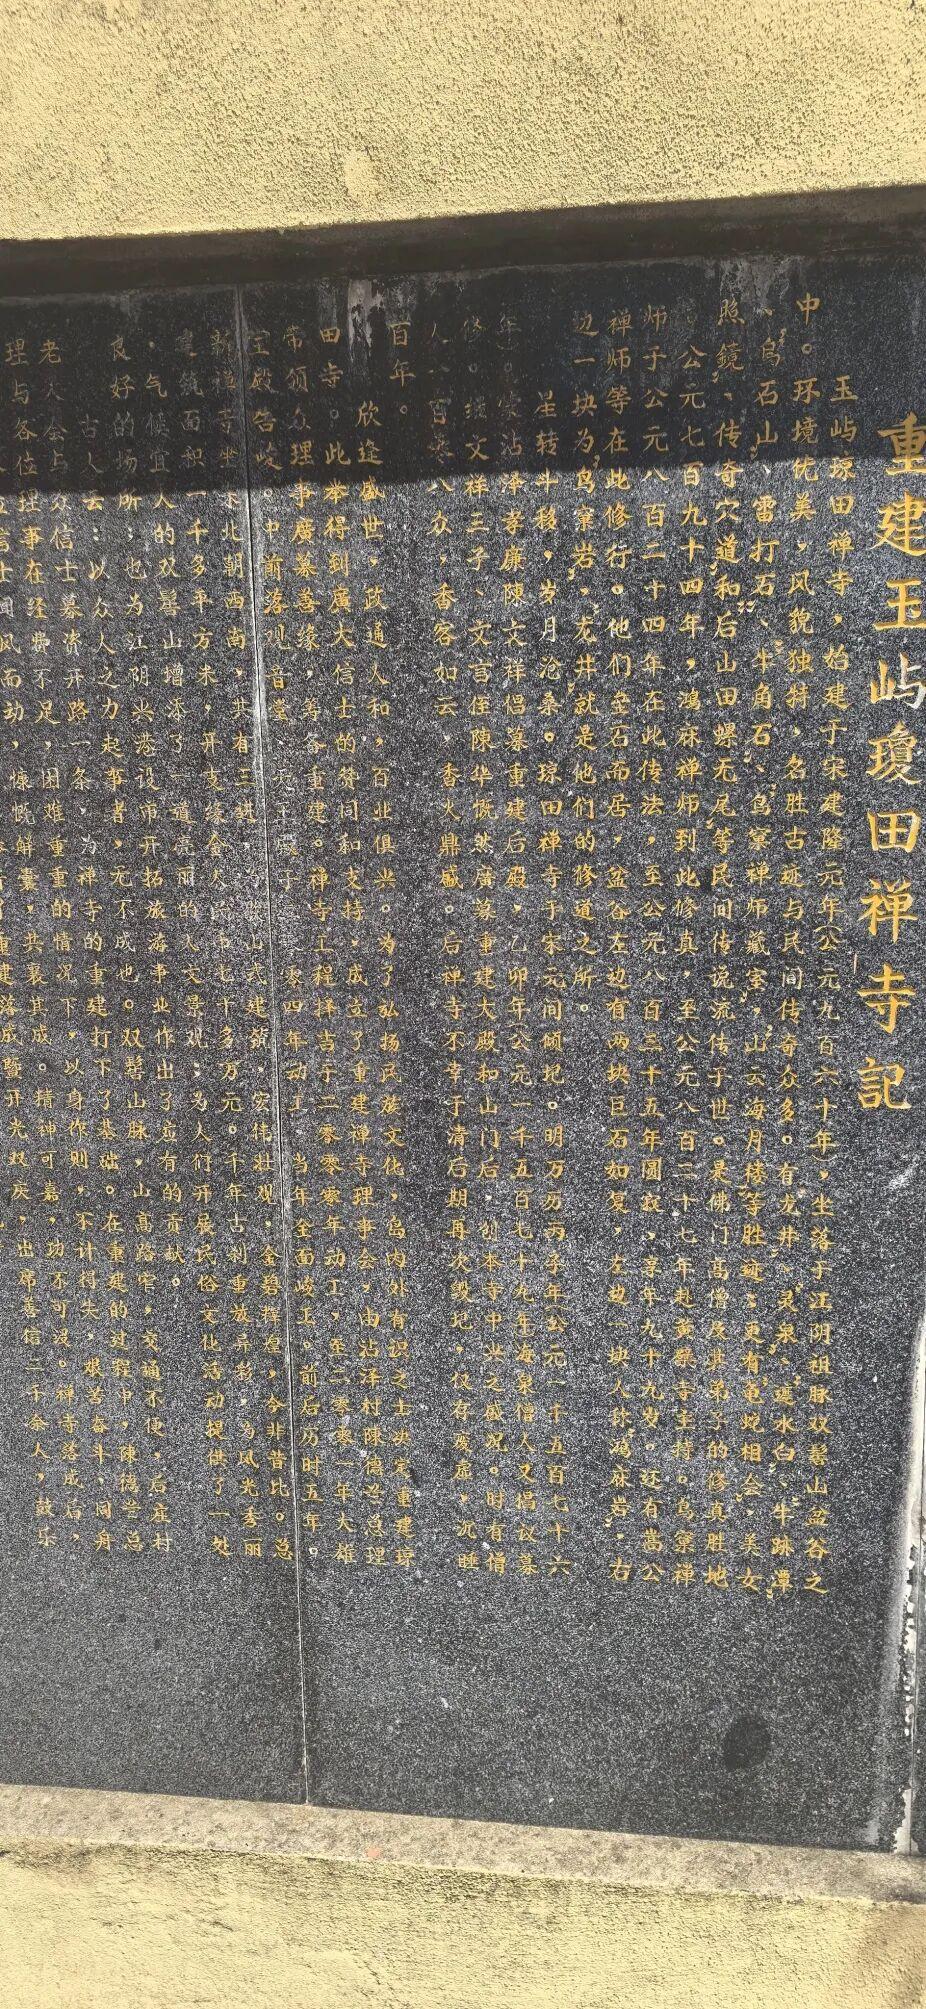 重建玉屿瓊田禅寺記
玉屿琼田禅寺，始建于宋建隆元年(公元九百六十年，坐落于江阴祖脉双髻山盆谷之
中。环境优美，风貌独特，名胜古迹与民间传奇众多。有龙井、灵泉、莲水臼、牛跡潭
、乌石山、雷打石、牛角石、鸟窠禅师藏室，山云海月楼等胜迹；更有龟蛇相会，美女
照鏡、传奇穴道和后山田螺无尾等民间传说流传于世。是佛门高僧及其弟子的修真胜地
。公元七百九十四年，鸿庥禅师到此修真，至公元八百二十七年赴黄檗寺主持。鸟窠禅
师于公元八百二十四年在此传法，至公元八百三十五年圆寂，享年九十九岁。还有嵩公
禅师等在此修行。他们垒石而居，盆谷左边有两块巨石如复，左边一块人称鸿庥岩，右
边一块为鸟窠岩，龙井就是他们的修道之所。
星转斗移，岁月沧桑。琼田禅寺于宋元间倾圮。明万历丙子年(公元一千五百七十六
年)。蒙沾泽孝廉陳文祥倡募重建后殿，乙卯年(公元一千五百七十九年)海泉僧人又揭议募
修。续文祥三子、文言侄陳华慨然廣募重建大殿和山门后，创本寺中兴之盛况。时有僧
人八百零八众，香客如云，香火鼎盛。后禅寺不幸于清后期再次毁圮，仅存废虚，沉睡
百年。
欣逢盛世，政通人和，百业俱兴。为了弘扬民族文化，岛内外有识之士决定重建琼
田寺。此举得到廣大信士的赞同和支持，成立了重建禅寺理事会，由沾泽村陳德芒总理
带领众理事廣募善缘，筹备重建。禅寺工程择吉于二零零零年动工，至二零零一年大雄
宝殿告峻。中前落观音堂、天王殿于二零零四年动工，当年全面峻工。前后历时五年。
新禅寺坐东北朝西南，共有三进，为歇山式建筑，宏伟壮观，金碧辉煌，今非昔比。总
建筑面积一千多平方米，开支缘金人民币七十多万元。千年古刹重放异彩，为风光秀丽
，气候宜人的双髻山增添了一道亮丽的人文景观；为人们开展民俗文化活动提供了一处
良好的场所；也为江阴兴港设市开拓旅游事业作出了应有的贡献。
古人云：以众人之力起事者，无不成也。双髻山脉，山高路窄，交通不便，后庄村
老人会与众信士募资开路一条，为禅寺的重建打下了基础。在重建的过程中，陳德芒总
理与各位理事在经费不足，困难重重的情况下，以身作则，不计得失，艰苦奋斗，同舟
士闻风而动，慷慨解囊，共襄其成。精神可嘉，功不可没。禅寺落成后，
重建落成暨开光双庆，出席善信二千余人，鼓乐